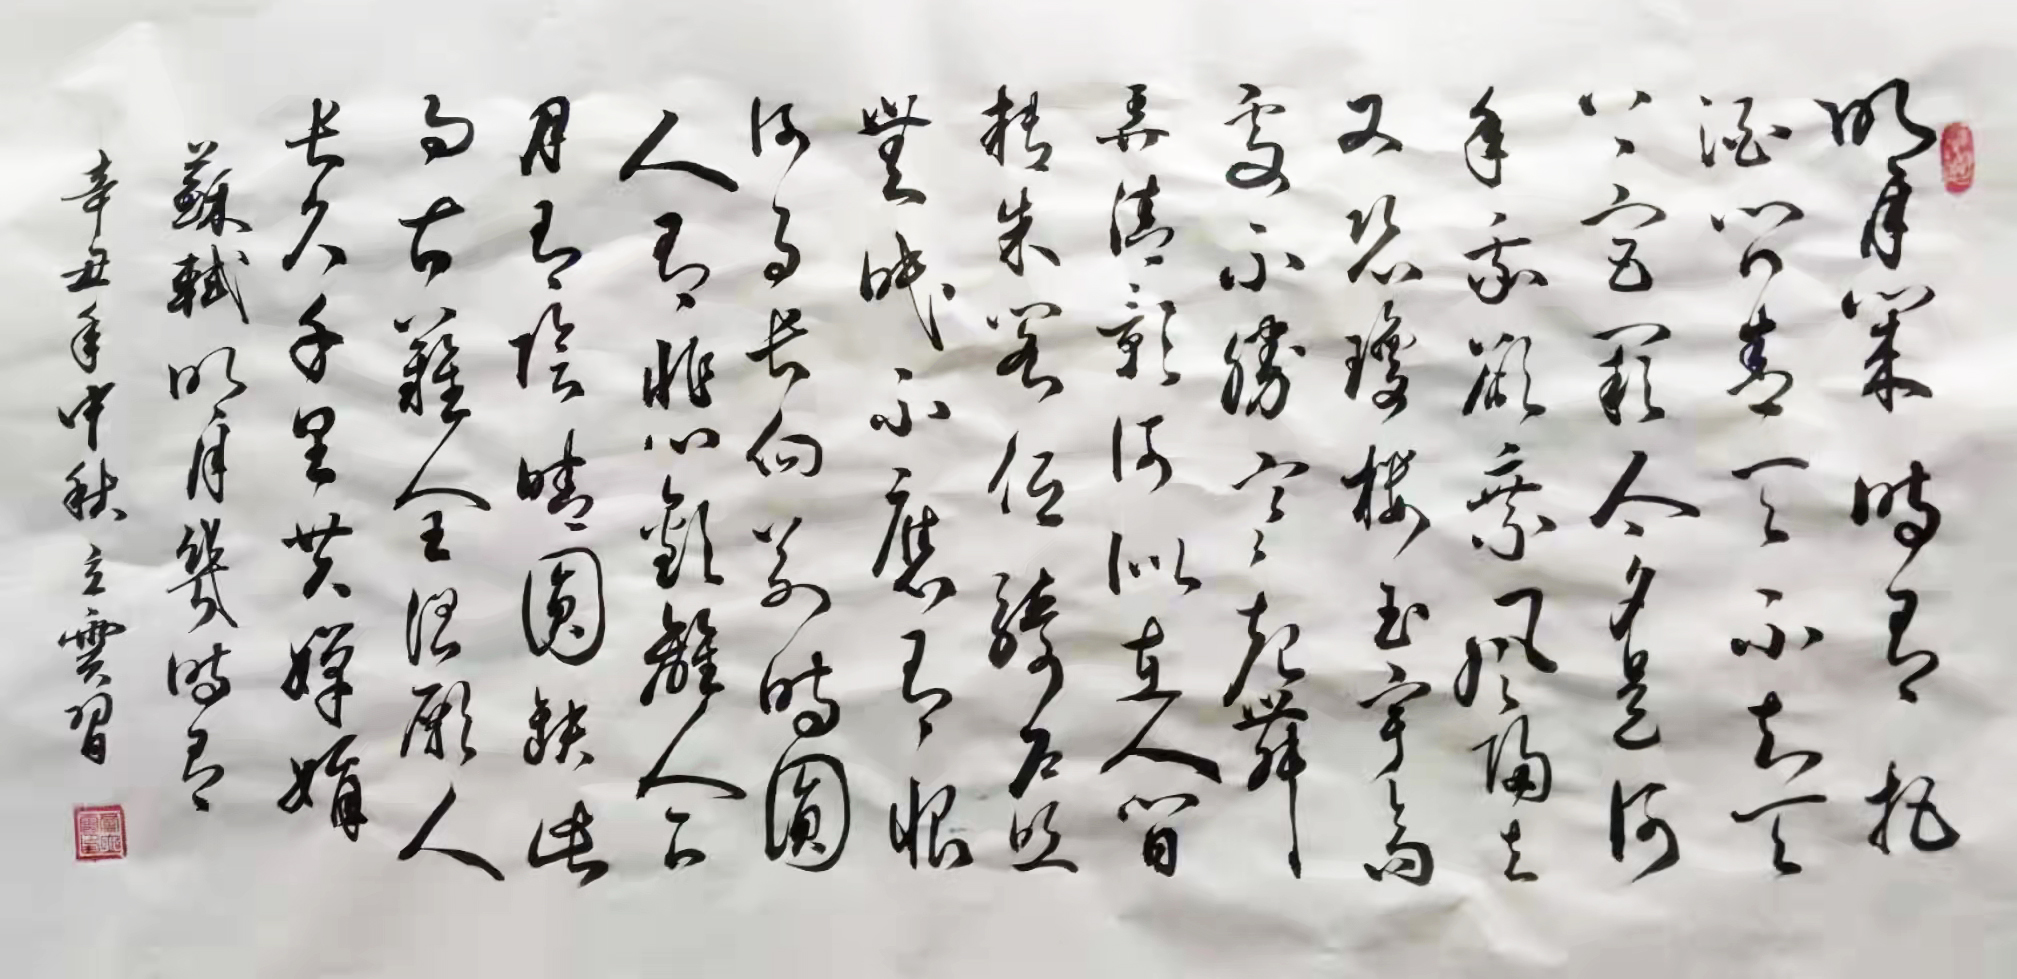 明月幾時有把
酒問青天不知天
上宫闕今夕是何
年我欲乘風歸去
又恐瓊樓玉宇高
處不勝寒起舞
弄清影何似在人間
轉朱閣低綺户照
無眠不應有恨
何事長向别時圓
人有悲歡離合
月有陰晴圓缺此
事古難全但願人
長久千里共嬋娟
蘇軾 明月幾時有
辛丑年中秋立雲習